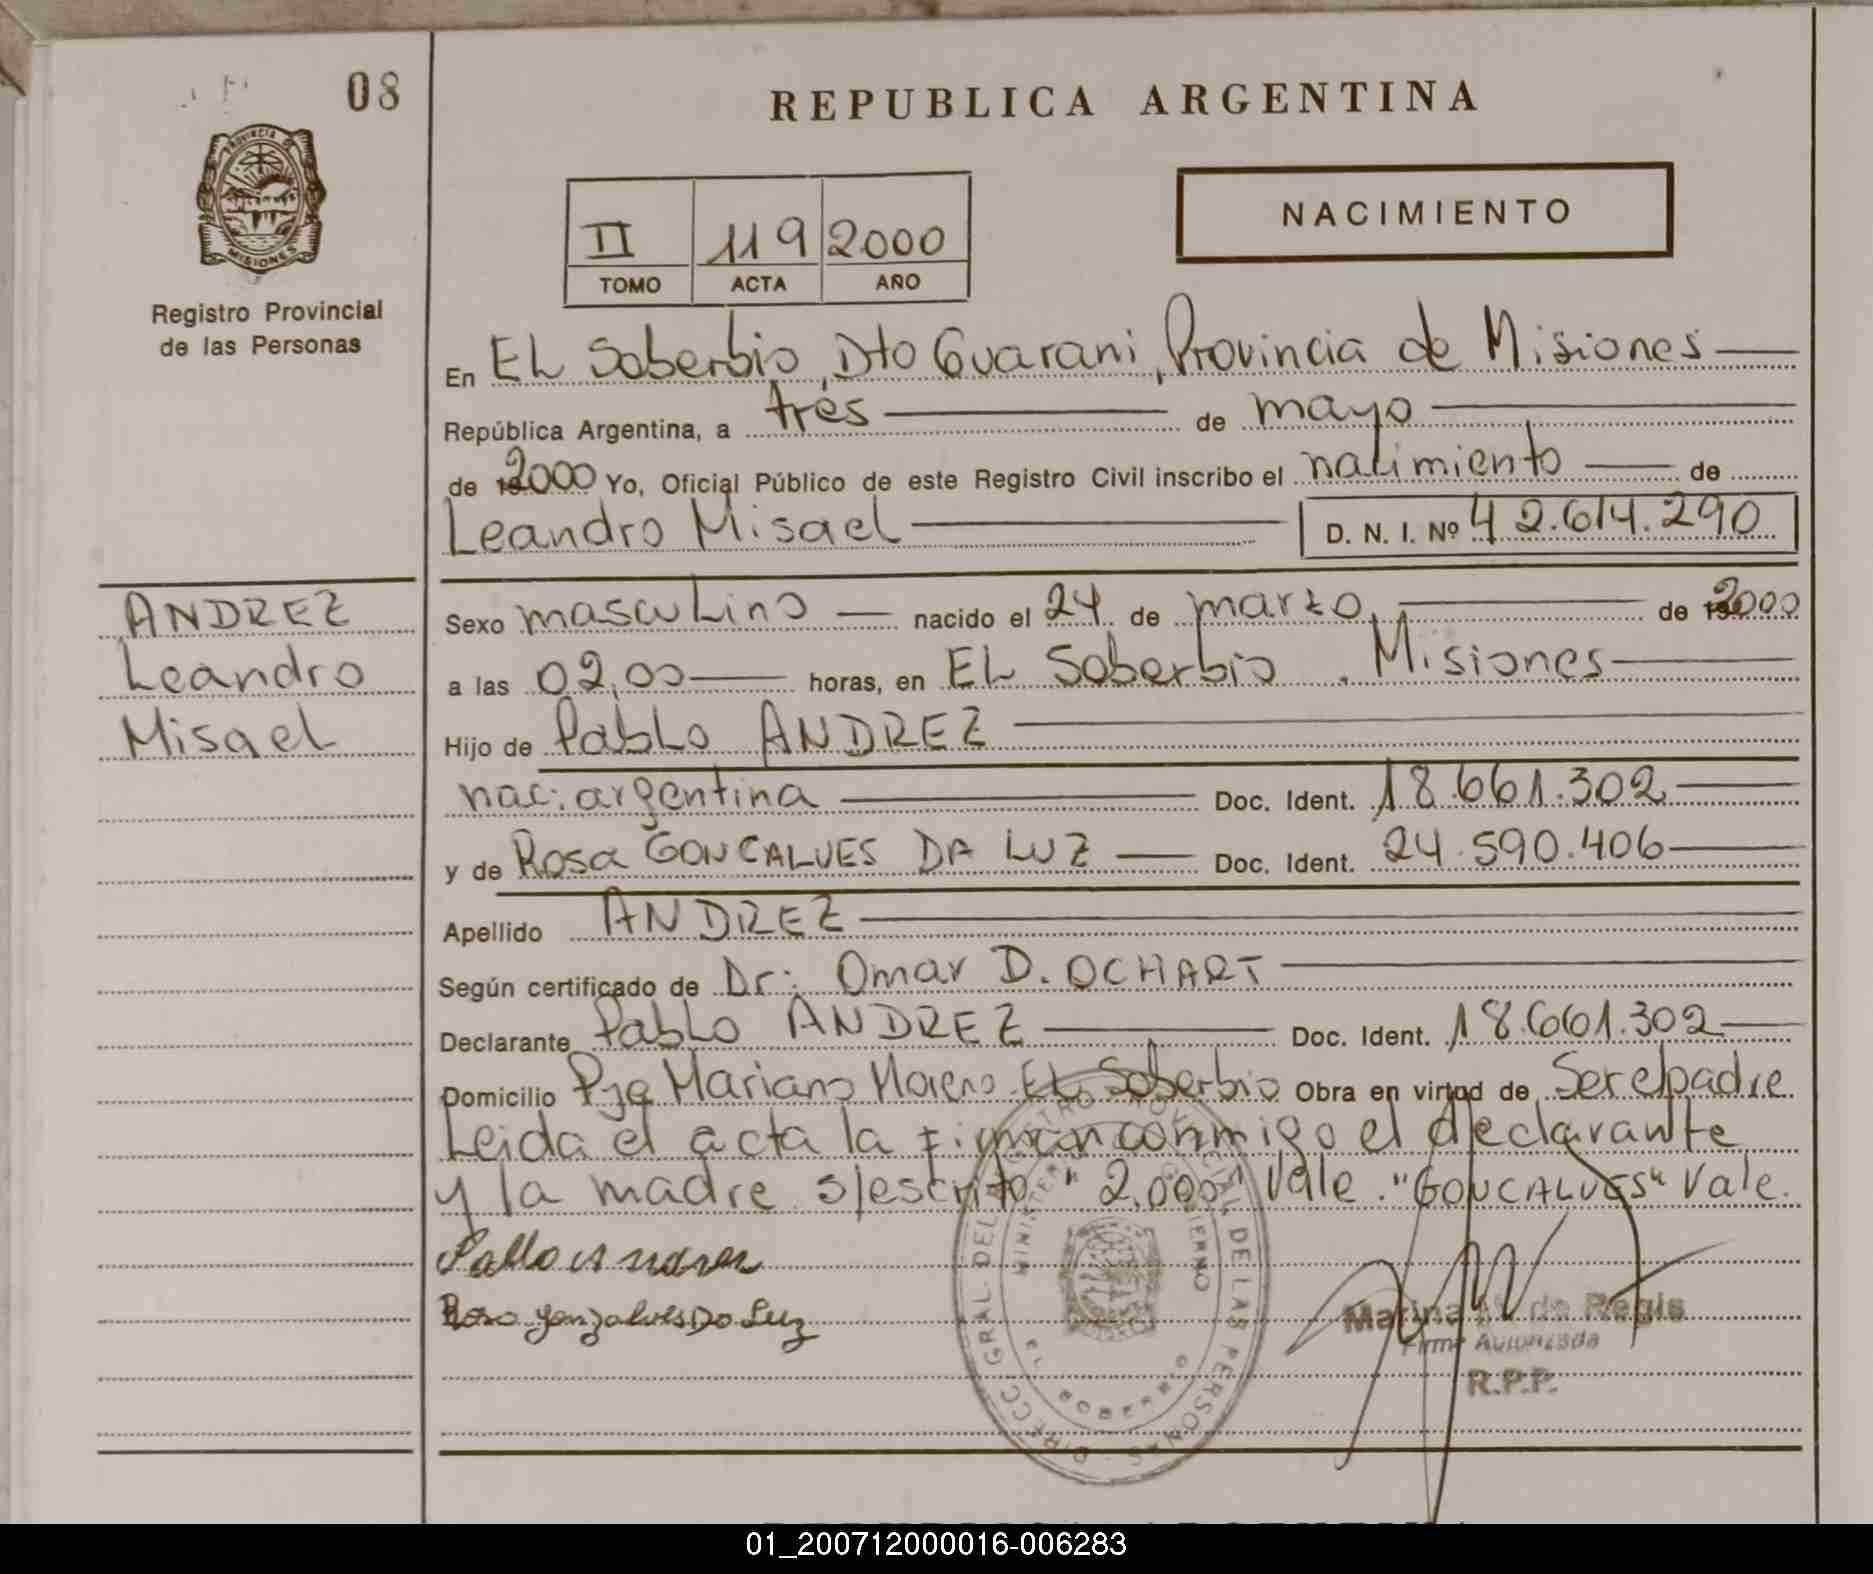 08
PROVINCIA DE
MISIONES
Registro Provincial
de las Personas
REPUBLICA ARGENTINA
NACIMIENTO
II 119 2000
TOMO ACTA AÑO
En EL Soberbio, Dto Guarani, Provincia de Misiones
República Argentina, a tres de mayo
de 2000 Yo, Oficial Público de este Registro Civil inscribo el nacimiento de
Leandro Misael D. N. I. Nº 42.614.290
ANDREZ
Leandro
Misael
Sexo masculino nacido el 24 de marzo de 2000
a las 02,00 horas, en EL Soberbio. Misiones
Hijo de Pablo ANDREZ
nac. argentina Doc. Ident. 18.661.302
y de Rosa GONCALVES DA LUZ Doc. Ident. 24.590.406
Apellido ANDREZ
Según certificado de Dr: Omar D. OCHART
Declarante Pablo ANDREZ Doc. Ident. 18.661.302
Domicilio Pje Mariano Moreno EL Soberbio Obra en virtud de Ser el padre
Leida el acta la firman conmigo el declarante
y la madre s/escrito "2.000" Vale. "GONCALVES" Vale.
Pablo Andrez
Rosa Gonzalves Da Luz
DIRECC. GRAL. DEL REGISTRO PROVINCIAL DE LAS PERSONAS
MINISTERIO GOBIERNO
EL SOBERBIO
Marina de Regis
Firma Autorizada
R.P.P.
01_200712000016-006283